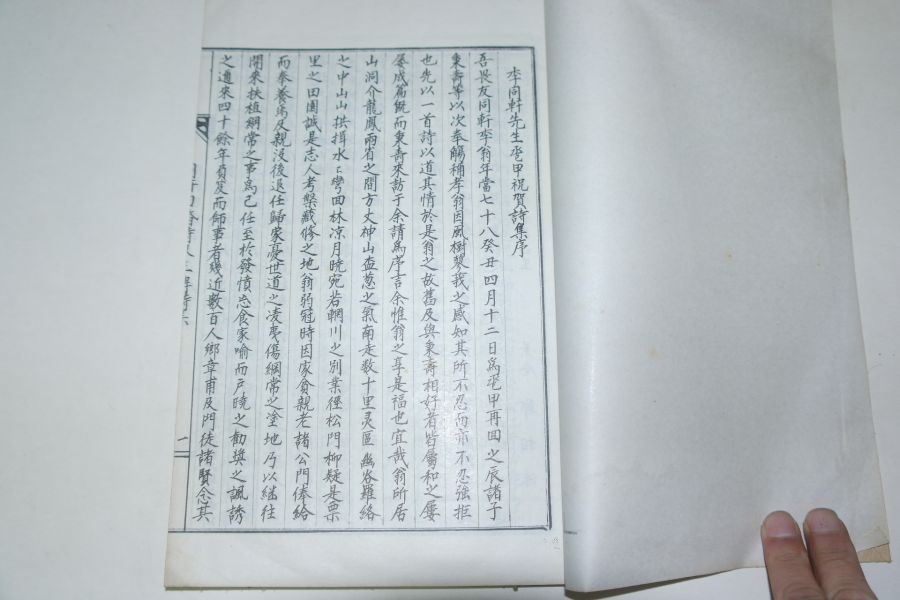 李同軒先生甲祝賀詩集序
吾畏友同軒李翁年當七十八癸丑四月十二日為甲再回之辰諸子
秉壽等以次奉觴稱孝翁因風樹蓼莪之感知其所不忍而亦不忍強拒
也先以一首詩以道其情於是翁之故舊及與秉壽相好者皆屬和之屢
屢成篇旣而秉壽來訪于余請為序言余惟翁之享是福也宜哉翁所居
山洞介龍鳳兩省之間方丈神山盃葱之氣南走数十里灵區幽谷羅絡
之中山山拱揖水水彎回林凉月曉宛若輞川之別業徑松門柳疑是栗
里之田園誠是志人考槃藏修之地翁弱冠時因家貧親老諸公門俸給
而奉養焉及親沒後退任歸家憂世道之凌夷傷綱常之塗地乃以継往
開來扶植綱常之事為己任至於發憤忘食家喻而戶曉之勸奬之諷誘
之邇來四十餘年負笈而師事者幾近數百人鄉章甫及門徒諸賢念其
一